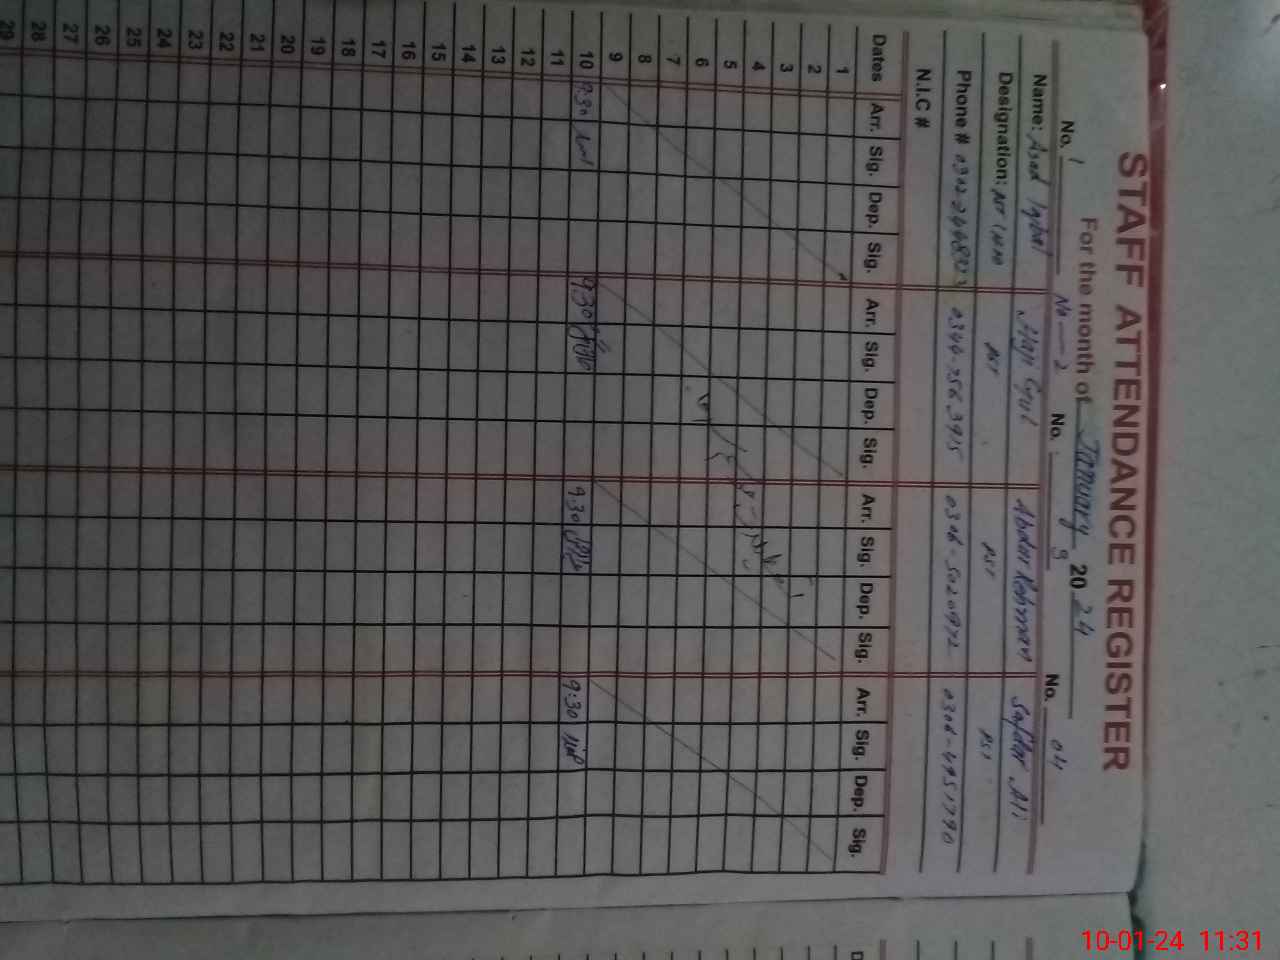 STAFF ATTENDANCE REGISTER
For the month of January 2024
No. 1 No—2 No. 3 No. 04
Name: Asad Iqbal Haji Gul Abdur Rehman Safdar Ali
Designation: PST PST PST
Phone # 0344-7563915 0306-5020972 0306-4951790
N.I.C #
Dates Arr. Sig. Dep. Sig. Arr. Sig. Dep. Sig. Arr. Sig. Dep. Sig. Arr. Sig. Dep. Sig.
1
2
3
4
5
6
7
8
9
10 9:30 9:30 9:30 9:30
11
12
13
14
15
16
17
18
19
20
21
22
23
24
25
26
27
28
29
10-01-24 11:31